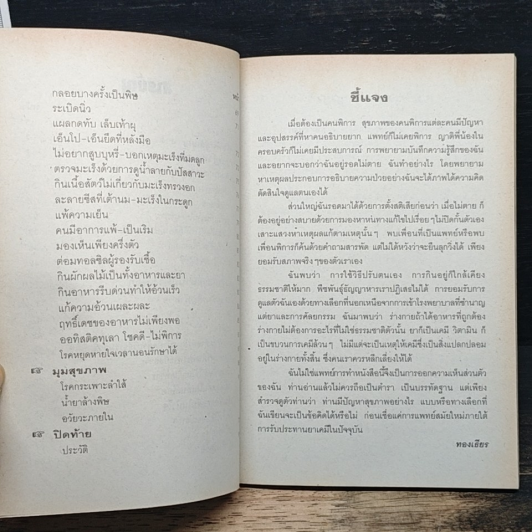 กลอยบางครั้งเป็นพิษ
ระเบิดนิ่ว
แผลกดทับ เล็บเท้าผุ
เอ็นโป-เอ็นยึดที่หลังมือ
ไม่อยากสูบบุหรี่-บอกเหตุมะเร็งที่มดลูก
ตรวจมะเร็งด้วยการดูน้ำลายกับปัสสาวะ
กินเนื้อสัตว์ไม่เกี่ยวกับมะเร็งทรวงอก
ละลายซิสที่เต้านม-มะเร็งในกระดูก
แพ้ความเย็น
คนมีอาการแพ้-เป็นเริม
มองเห็นเพียงครึ่งตัว
ต่อมทอลซิลผู้รองรับเชื้อ
กินผักผลไม้เป็นทั้งอาหารและยา
กินอาหารรีบด่วนทำให้อ้วนเร็ว
แก้ความอ้วนเผละผละ
ฤทธิ์เดชของอาหารไม่เพียงพอ
ออทิสติคทุเลา โชคดี-ไม่พิการ
โรคหยุดหายใจเวลานอนรักษาได้
มุมสุขภาพ
โรคกระเพาะลำไส้
น้ำยาล้างพิษ
อวัยวะภายใน
ปิดท้าย
ประวัติ
ชี้แจง
เมื่อต้องเป็นคนพิการ สุขภาพของคนพิการแต่ละคนมีปัญหา
และอุปสรรค์ที่หาคนอธิบายยาก แพทย์ก็ไม่เคยพิการ ญาติพี่น้องใน
ครอบครัวก็ไม่เคยมีประสบการณ์ การพยายามบันทึกความรู้สึกของฉัน
และอยากจะบอกว่าฉันอยู่รอดไม่ตาย ฉันทำอย่างไร โดยพยายาม
หาเหตุผลประกอบการอธิบายความป่วยอย่างฉันจะได้ภาพได้ความคิด
ตัดสินใจดูแลตนเองได้
ส่วนใหญ่ฉันรอดมาได้ด้วยการตั้งสติเสียก่อนว่า เมื่อไม่ตาย ก็
ต้องอยู่อย่างสบายด้วยการมองหาหนทางแก้ไขไปเรื่อยๆ ไม่ปิดกั้นตัวเอง
เสาะแสวงหาเหตุผลก็ตามเหตุนั้นๆ พบเพื่อนที่เป็นแพทย์หรือพบ
เพื่อนพิการก็ค้นด้วยคำถามสารพัด แต่ไม่ได้หวังว่าจะยืนลุกวิ่งได้ เพียง
ยอมรับสภาพจริงๆของตัวเราเอง
ฉันพบว่า การใช้วิธีปรับตนเอง การกินอยู่ก็ใกล้เคียง
ธรรมชาติให้มาก พืชพันธุ์ธัญญาหารเราปฏิเสธไม่ได้ การยอมรับการ
ดูแลตัวฉันเองด้วยทางเลือกที่นอกเหนือจากการเข้าโรงพยาบาลที่ชำนาญ
แต่ยาและการศัลยกรรม ฉันมาพบว่า ร่างกายถ้าได้อาหารที่ถูกต้อง
ร่างกายไม่ต้องการอะไรที่ไม่ใช่ธรรมชาติตัวนั้น ยาก็เป็นเคมี วิตามิน ก็
เป็นขบวนการเคมีล้วนๆ ไม่มีแต่จะเป็นเหตุให้เคมีซึ่งเป็นสิ่งแปลกปลอม
อยู่ในร่างกายทั้งสิ้น ซึ่งคนเราควรหลีกเลี่ยงให้ได้
ฉันไม่ใช่แพทย์การทำหนังสือนี้จึงเป็นการออกความเห็นส่วนตัว
ของฉัน ท่านอ่านแล้วไม่ควรถือเป็นตำรา เป็นบรรทัดฐาน แต่เพียง
สำรวจดูตัวท่านว่า ท่านมีปัญหาสุขภาพอย่างไร แบบหรือทางเลือกที่
ฉันเขียนจะเป็นข้อคิดได้หรือไม่ ก่อนเชื่อแค่การแพทย์สมัยใหม่ภายใต้
การรับประทานยาเคมีในปัจจุบัน
ทองเธียร